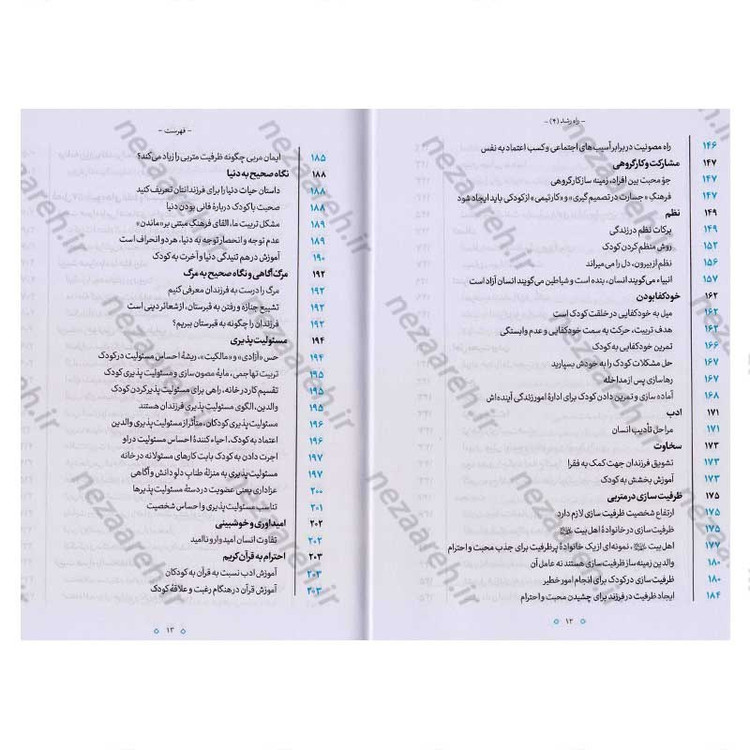 - راه رشد (۴) -
راه مصونیت در برابر آسیب‌های اجتماعی و کسب اعتماد به نفس ۱۴۶
مشارکت و کار گروهی ۱۴۷
جوّ محبت بین افراد، زمینه ساز کار گروهی ۱۴۷
فرهنگِ «جسارت در تصمیم گیری» و «کار تیمی» از کودکی باید ایجاد شود ۱۴۷
نظم ۱۴۹
برکات نظم در زندگی ۱۴۹
روش منظم کردن کودک ۱۵۲
نظم از بیرون، دل را می‌میراند ۱۵۶
انبیاء می‌گویند انسان، بنده است و شیاطین می‌گویند انسان آزاد است ۱۵۷
خودکفا بودن ۱۶۲
میل به خودکفایی در خلقت کودک است ۱۶۲
هدف تربیت، حرکت به سمت خودکفایی و عدم وابستگی ۱۶۲
تمرین خودکفایی به کودک ۱۶۶
حل مشکلات کودک را به خودش بسپارید ۱۶۷
رهاسازی پس از مداخله ۱۶۷
آماده سازی و تمرین دادن کودک برای ادارهٔ امور زندگی آینده‌اش ۱۶۸
ادب ۱۷۱
مراحل تأدیب انسان ۱۷۱
سخاوت ۱۷۳
تشویق فرزندان جهت کمک به فقرا ۱۷۳
آموزش بخشش به کودک ۱۷۳
ظرفیت سازی در متربی ۱۷۵
ارتفاع شخصیت ظرفیت سازی لازم دارد ۱۷۵
ظرفیت سازی در خانوادهٔ اهل بیت ۱۷۵
اهل بیت، نمونه‌ای از یک خانوادهٔ پرظرفیت برای جذب محبت و احترام ۱۷۷
والدین زمینه ساز ظرفیت سازی هستند نه عامل آن ۱۸۰
ظرفیت سازی در کودک برای انجام امور خطیر ۱۸۰
ایجاد ظرفیت در فرزند برای چشیدن محبت و احترام ۱۸۴
۱۲
- فهرست -
ایمان مربی چگونه ظرفیت متربی را زیاد می‌کند؟ ۱۸۵
نگاه صحیح به دنیا ۱۸۸
داستان حیات دنیا را برای فرزندانتان تعریف کنید ۱۸۸
صحبت با کودک دربارهٔ فانی بودن دنیا ۱۸۸
مشکل تربیت ما، القای فرهنگِ مبتنی بر «ماندن» ۱۸۹
عدم توجه و انحصار توجه به دنیا، هر دو انحراف است ۱۸۹
آموزش در هم تنیدگی دنیا و آخرت به کودک ۱۹۰
مرگ آگاهی و نگاه صحیح به مرگ ۱۹۲
مرگ را درست به فرزندان معرفی کنیم ۱۹۲
تشییع جنازه و رفتن به قبرستان، از شعائر دینی است ۱۹۲
فرزندان را چگونه به قبرستان ببریم؟ ۱۹۳
مسئولیت پذیری ۱۹۴
حس «آزادی» و «مالکیت»، ریشهٔ احساس مسئولیت در کودک ۱۹۴
تربیت تهاجمی، مایهٔ مصون سازی و مسئولیت پذیری کودک ۱۹۵
تقسیم کار در خانه، راهی برای مسئولیت پذیر کردن کودک ۱۹۵
والدین، الگوی مسئولیت پذیری فرزندان هستند ۱۹۵
مسئولیت پذیری کودکان، متأثر از مسئولیت پذیری والدین ۱۹۶
اعتماد به کودک، احیاء کنندهٔ احساس مسئولیت در او ۱۹۶
اجرت دادن به کودک بابت کارهای مسئولانه در خانه ۱۹۷
مسئولیت پذیری به منزلهٔ طناب دلوِ دانش و آگاهی ۱۹۷
عزاداری یعنی عضویت در دستهٔ مسئولیت پذیرها ۲۰۰
تناسب مسئولیت پذیری و احساس شخصیت ۲۰۱
امیدواری و خوشبینی ۲۰۲
تفاوت انسان امیدوار و ناامید ۲۰۲
احترام به قرآن کریم ۲۰۳
آموزش ادب نسبت به قرآن به کودکان ۲۰۳
آموزش قرآن در هنگام رغبت و علاقهٔ کودک ۲۰۳
۱۳
nezaareh.ir